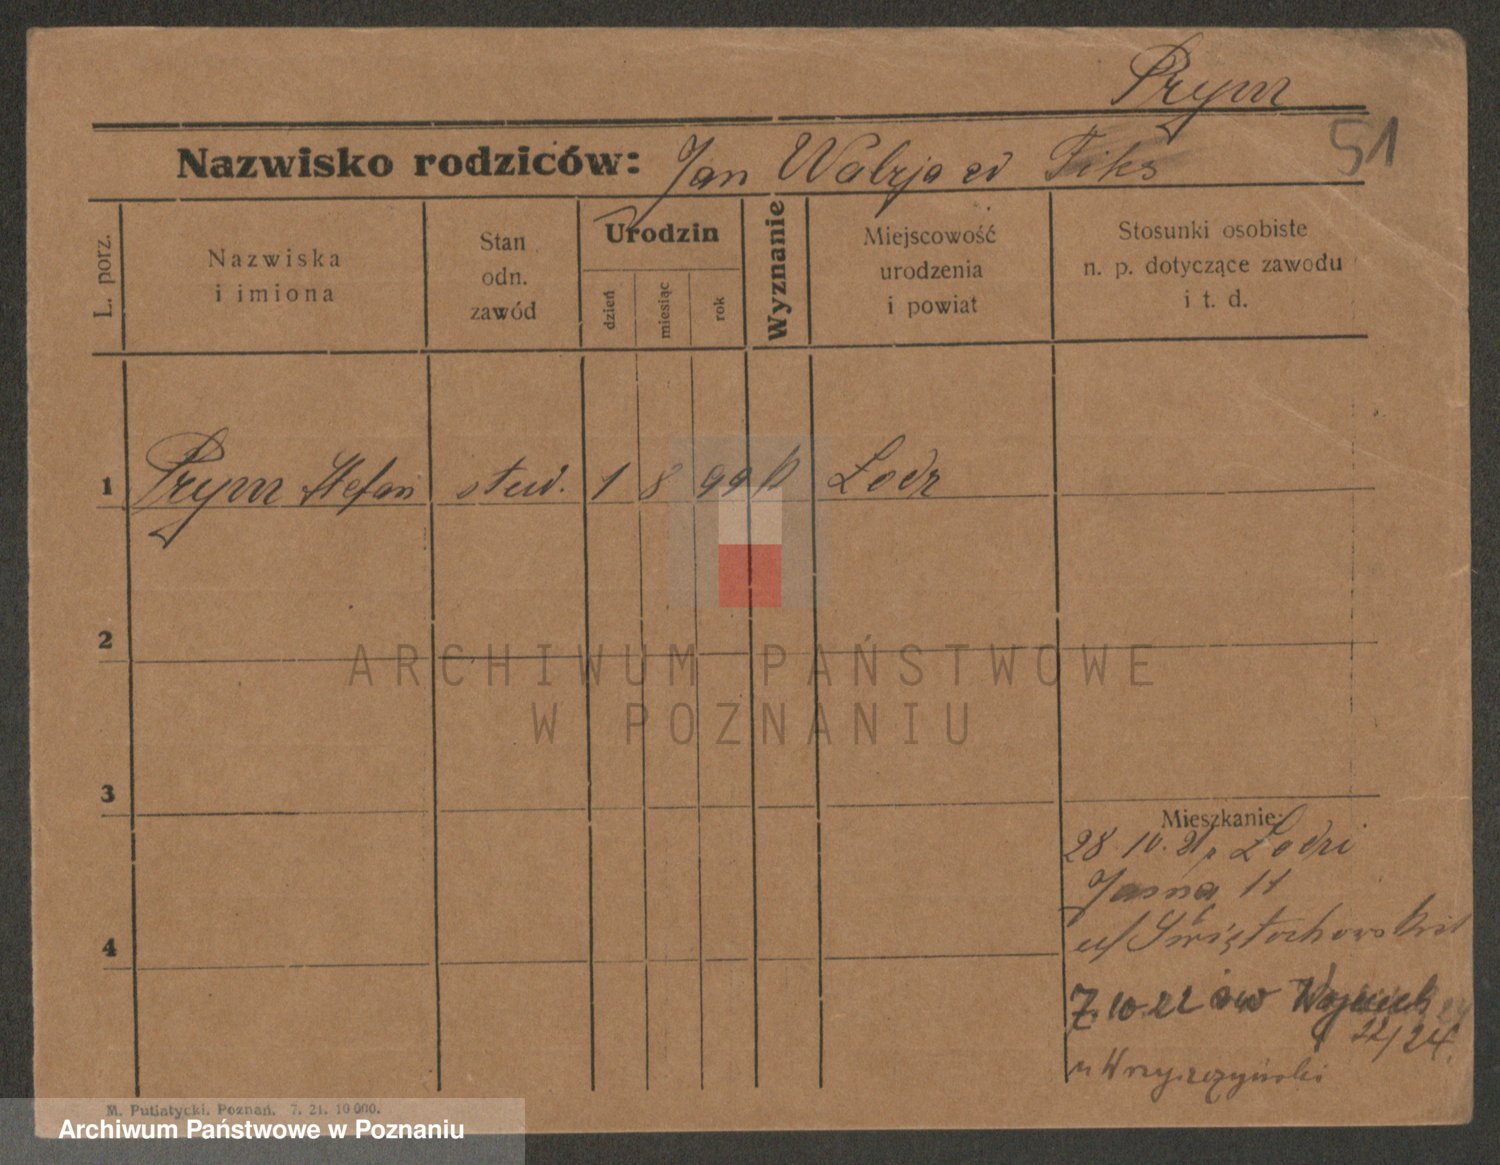 Prym
51
Nazwisko rodziców: Jan
L. porz.
Nazwiska
i imiona
Stan
odn.
zawód
Urodzin
dzień
miesiąc
rok
Wyznanie
Miejscowość
urodzenia
i powiat
Stosunki osobiste
n. p. dotyczące zawodu
i t. d.
1 Prym Stefan stud. 1 8 99 k Łodz
2
3
4
Mieszkanie:
28. 10. 21 z Łodzi
Jasna 11
7. 10. 22
22/24.
ARCHIWUM PAŃSTWOWE
W POZNANIU
M. Putiatycki. Poznań. 7. 21. 10 000.
Archiwum Państwowe w Poznaniu